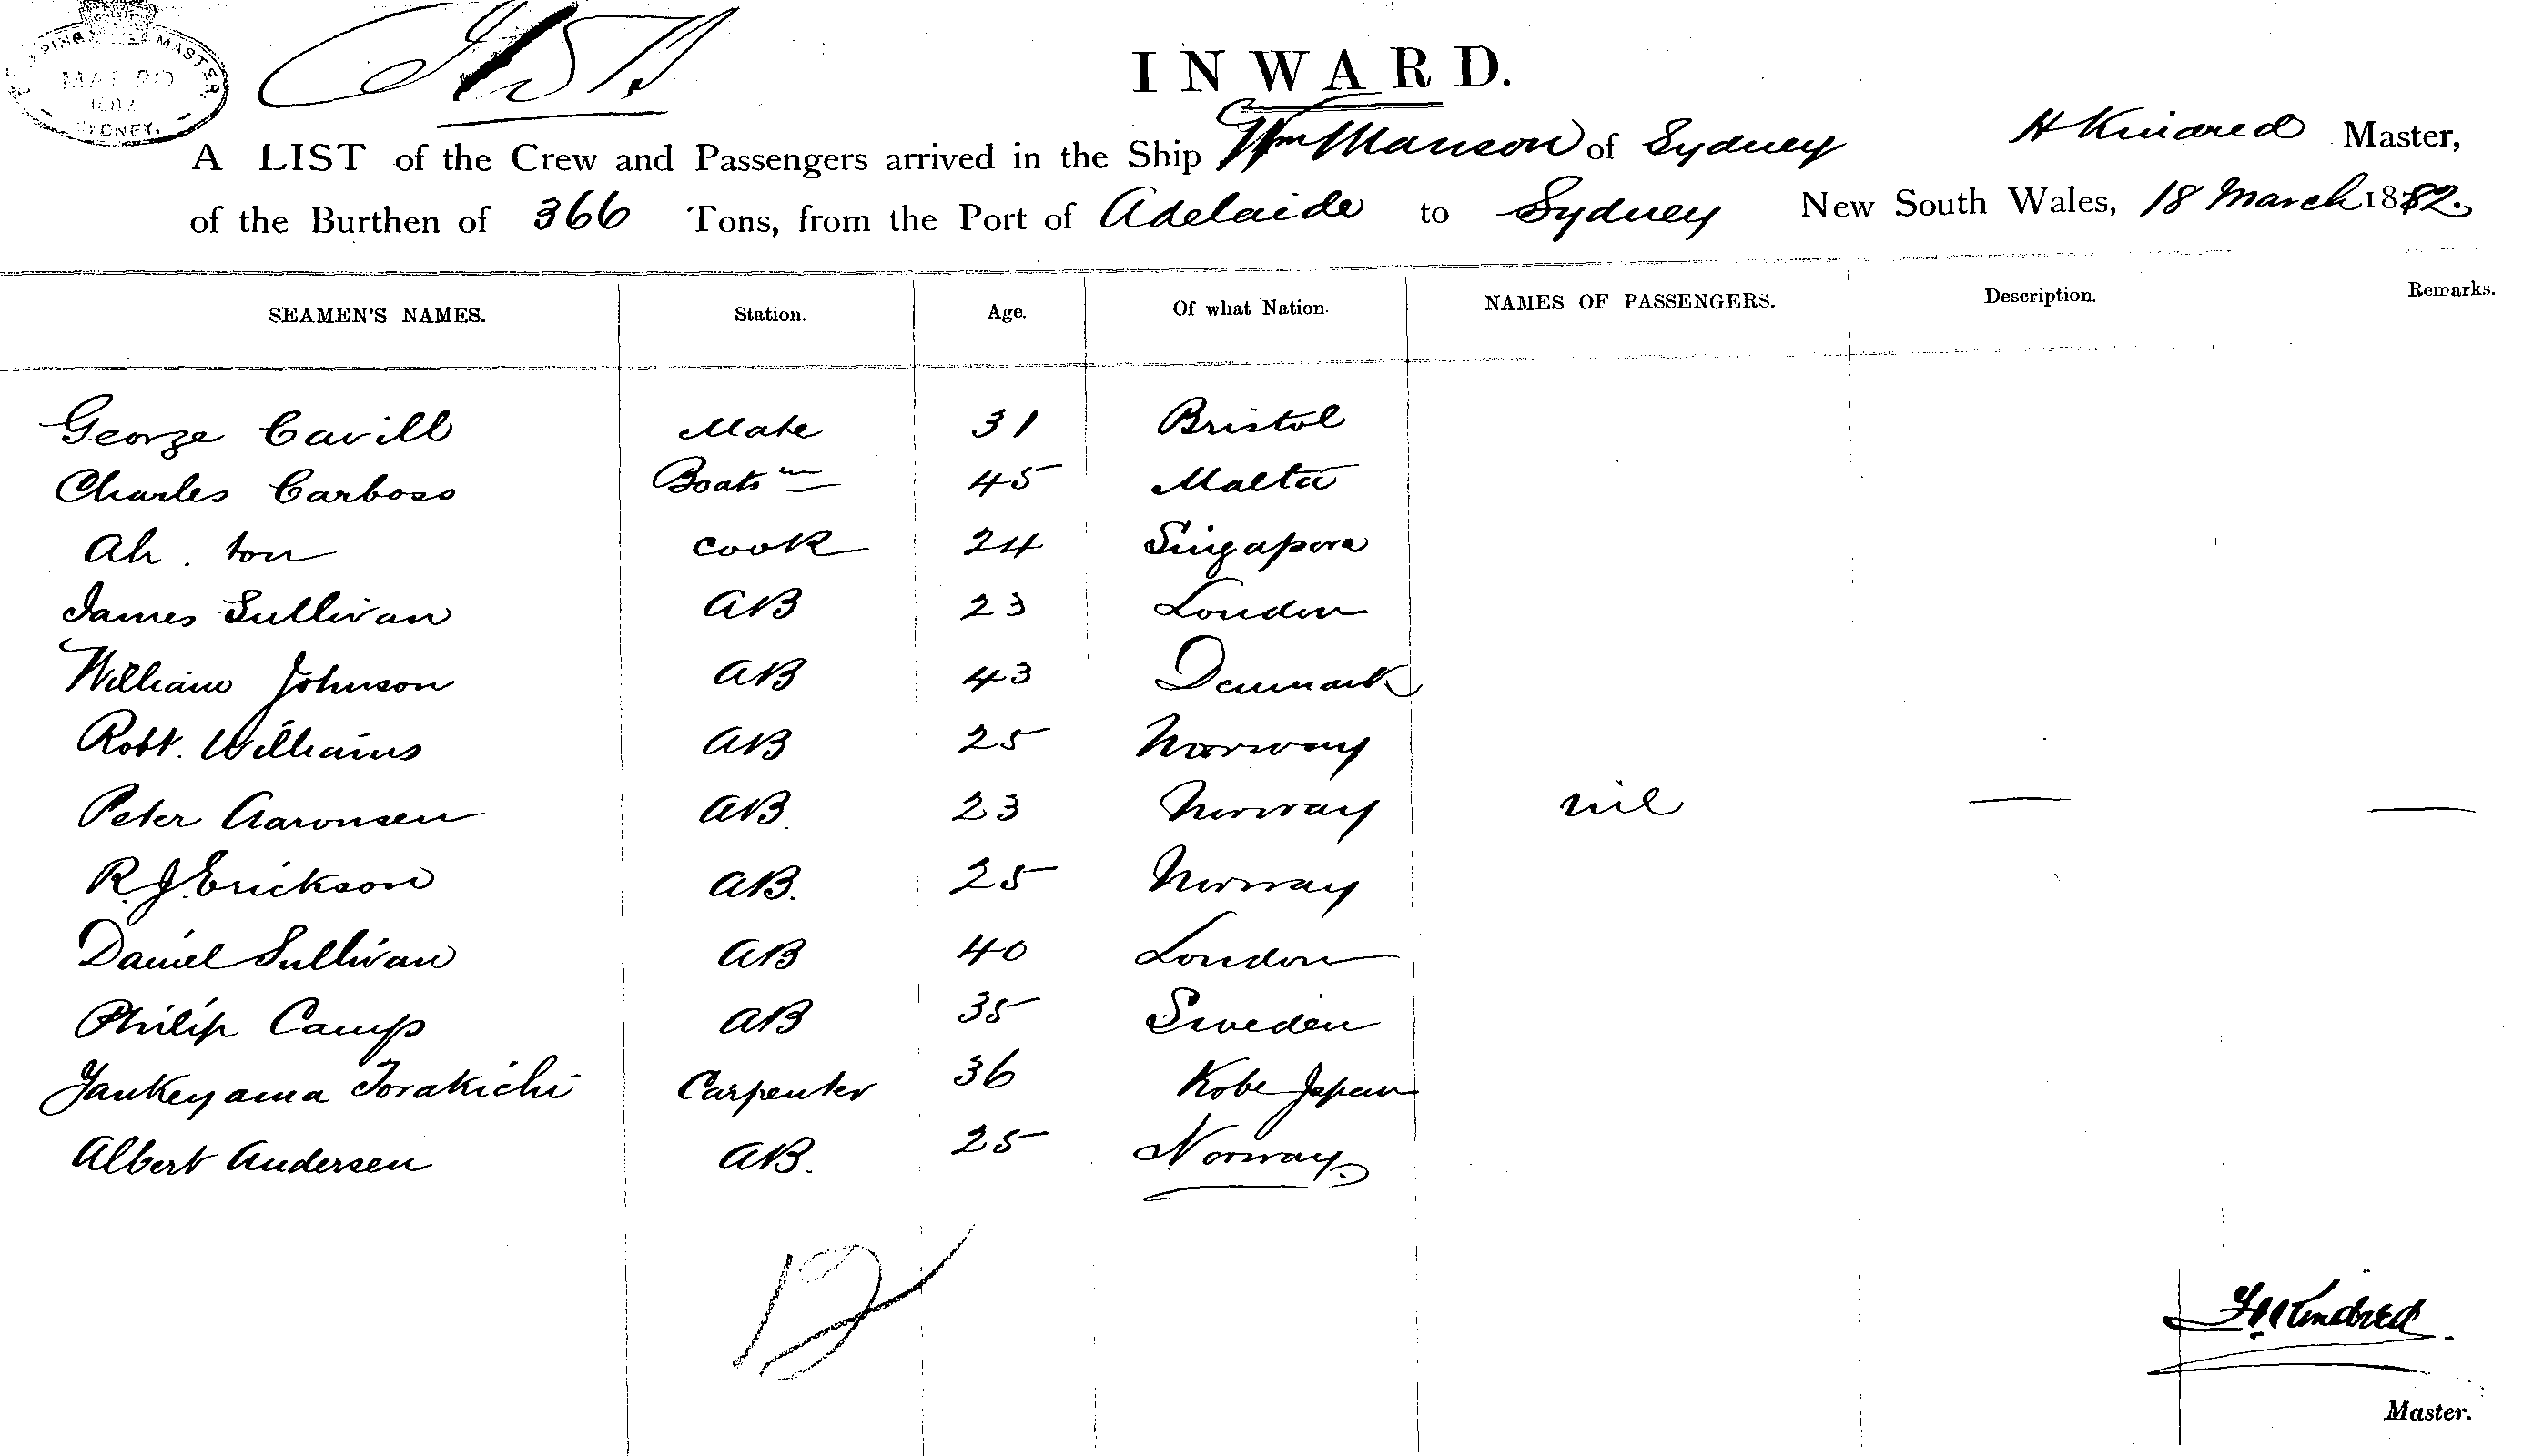 SHIPPING MASTER
MAR 20
1882
SYDNEY.
INWARD.
A LIST of the Crew and Passengers arrived in the Ship Wm Manson of Sydney H Kindred Master,
of the Burthen of 366 Tons, from the Port of Adelaide to Sydney New South Wales, 18 March 1882.
SEAMEN'S NAMES. Station. Age. Of what Nation. NAMES OF PASSENGERS. Description. Remarks.
George Cavill Mate 31 Bristol
Charles Carboso Boatsn 45 Malta
Ah . ton cook 24 Singapore
James Sullivan AB 23 London
William Johnson AB 43 Denmark
Robt. Williams AB 25 Norway
Peter Aaronsen AB. 23 Norway nil — —
R. J. Erickson AB. 25 Norway
Daniel Sullivan AB 40 London
Philip Camp AB 35 Sweden
Yaukeyama Torakichi Carpenter 36 Kobe Japan
Albert Andersen AB. 25 Norway.
12
H Kindred.
Master.